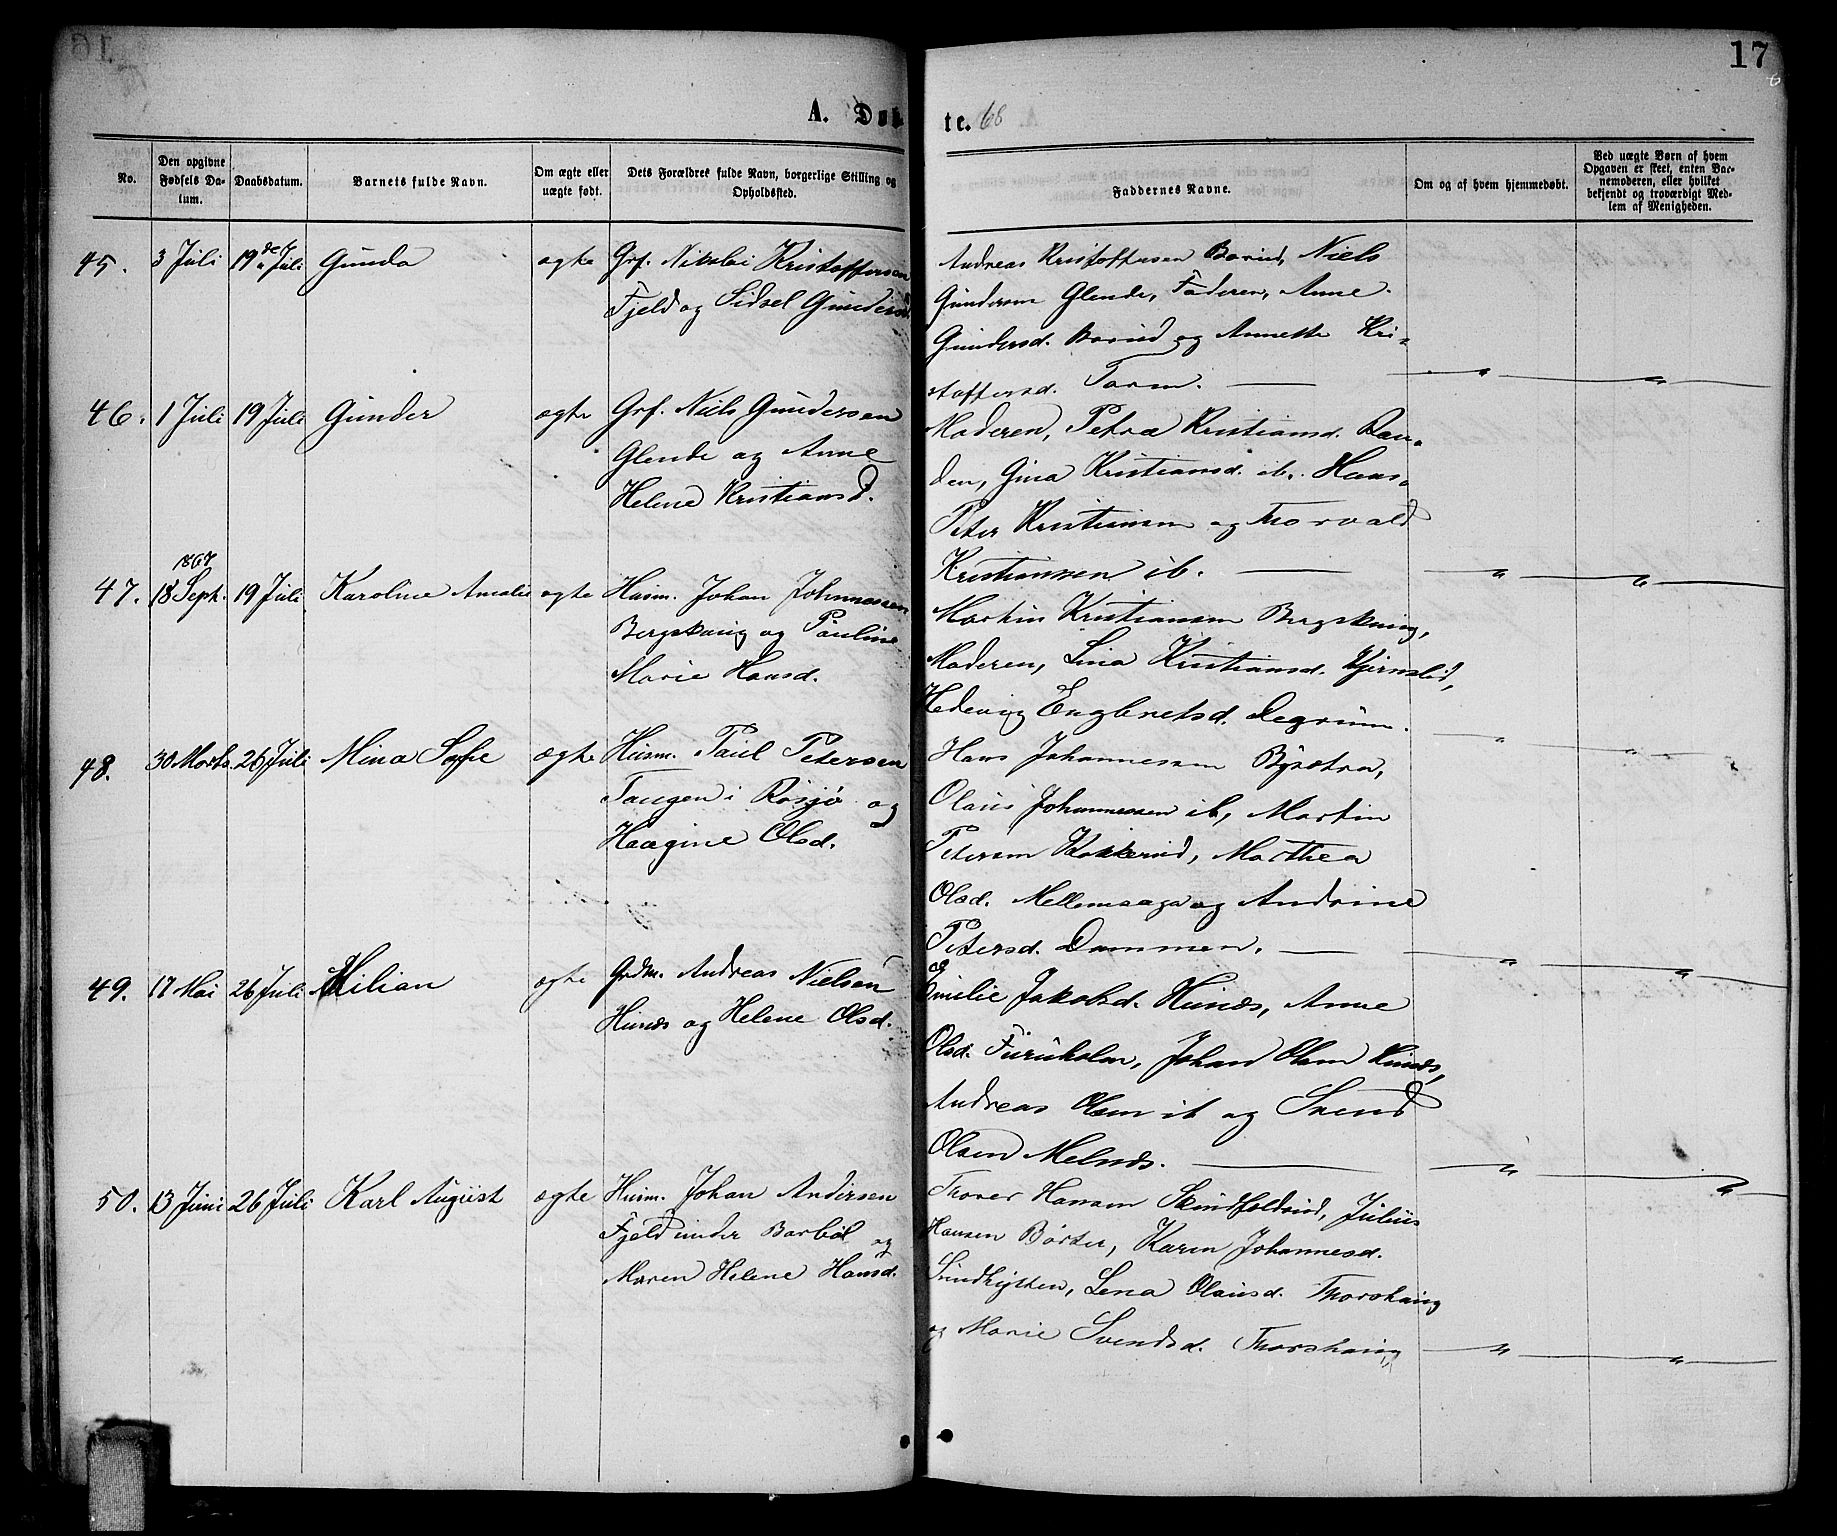 17
A. Døb
te. 68
No.
Den opgivne Fødsels Datum.
Daabsdatum.
Barnets fulde Navn.
Om ægte eller uægte født.
Dets Forældres fulde Navn, borgerlige Stilling og Opholdssted.
Faddernes Navne.
Om og af hvem hjemmedøbt.
Ved uægte Børn af hvem Opgaven er skeet, enten Barnemoderen, eller hvilket bekjendt og troværdigt Medlem af Menigheden.
45. 3 Juli 19de Juli Gunda ægte Grf. Nikolai Kristoffersen
Fjeld og Sidsel Gundersd
Andreas Kristoffersen Borud, Niels
Gundersen Glende, Faderen, Anne
Gundersd. Borud og Annette Kri-
stoffersd. Torm. — " — "
46. 1 Juli 19 Juli Gunder ægte Grf. Niels Gundersen
Glende og Anne
Helene Kristiansd.
Moderen, Petra Kristiansd. Rau-
den, Gina Kristiansd. ib. Hans
Peter Kristiansen og Thorvald
Kristiansen ib. — " — "
47. 1867 18 Sept. 19 Juli Karoline Amalie ægte Husm. Johan Johannessen
Bergskaug og Pauline
Marie Hansd.
Martin Kristiansen Bergskaug,
Moderen, Lina Kristiansd.
Hedevig Engbretsd. Degrum. " — "
48. 30 Marts 26 Juli Mina Sofie ægte Husm. Paul Petersen
Tangen i Rösjö og
Haagine Olsd.
Hans Johannessen Bysætra,
Olaus Johannessen ib, Martin
Petersen Kokkerud, Marthea
Olsd. Mellemsaga og Andrine
Petersd. Dammen. — " — "
49. 17 Mai 26 Juli Milian ægte Grdm. Andreas Nielsen
Hunæs og Helene Olsd.
Emelie Jakobsd. Hunæs, Anne
Olsd. Furuholm, Johan Olsen Hunæs,
Andreas Olsen ib og Svend
Olsen Melnæs. — " — "
50. 13 Juni 26 Juli Karl August ægte Husm. Johan Andersen
Fjeld under Barböl og
Maren Helene Hansd.
Thorer Hansen Skindfeldrud, Julius
Hansen Börter, Karen Johannesd.
Sundhytten, Lena Olausd. Thorshaug
og Marie Svendsd. Thorshaug — " — "